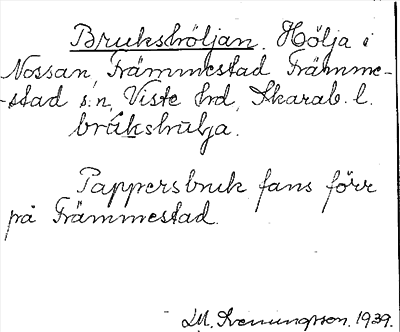 Brukshöljan. Hölja i
Nossan, Främmestad Främme-
-stad s:n, Viste hrd, Skarab. l.
brúkshulja.
Pappersbruk fans förr
på Främmestad.
M. Svenungsson. 1939.